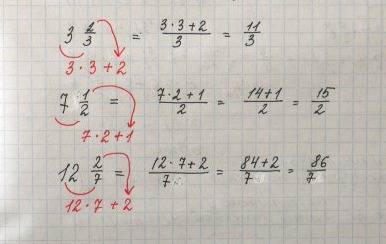 3 2/3 = (3·3+2)/3 = 11/3
3·3+2
7 1/2 = (7·2+1)/2 = (14+1)/2 = 15/2
7·2+1
12 2/7 = (12·7+2)/7 = (84+2)/7 = 86/7
12·7+2